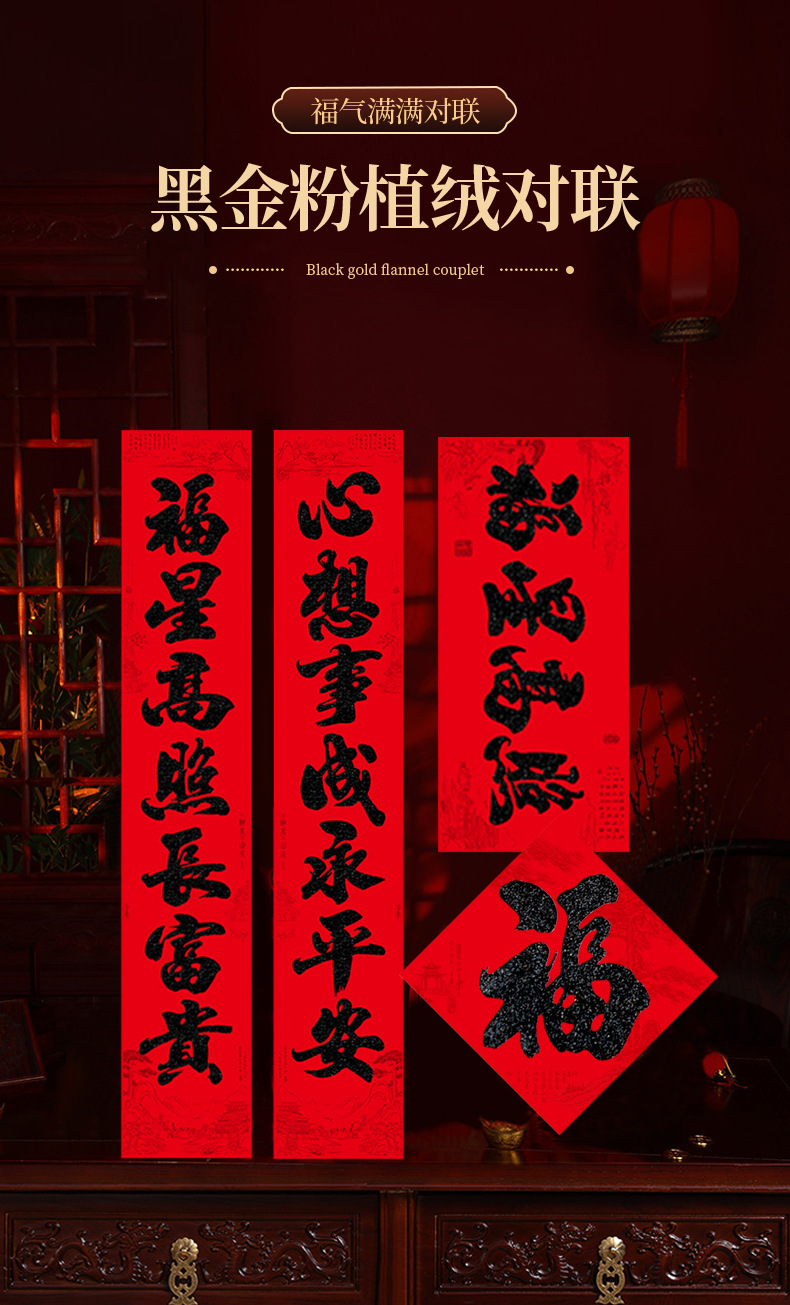 福气满满对联
黑金粉植绒对联
Black gold flannel couplet
福星高照長富貴
心想事成永平安
福星高照
福